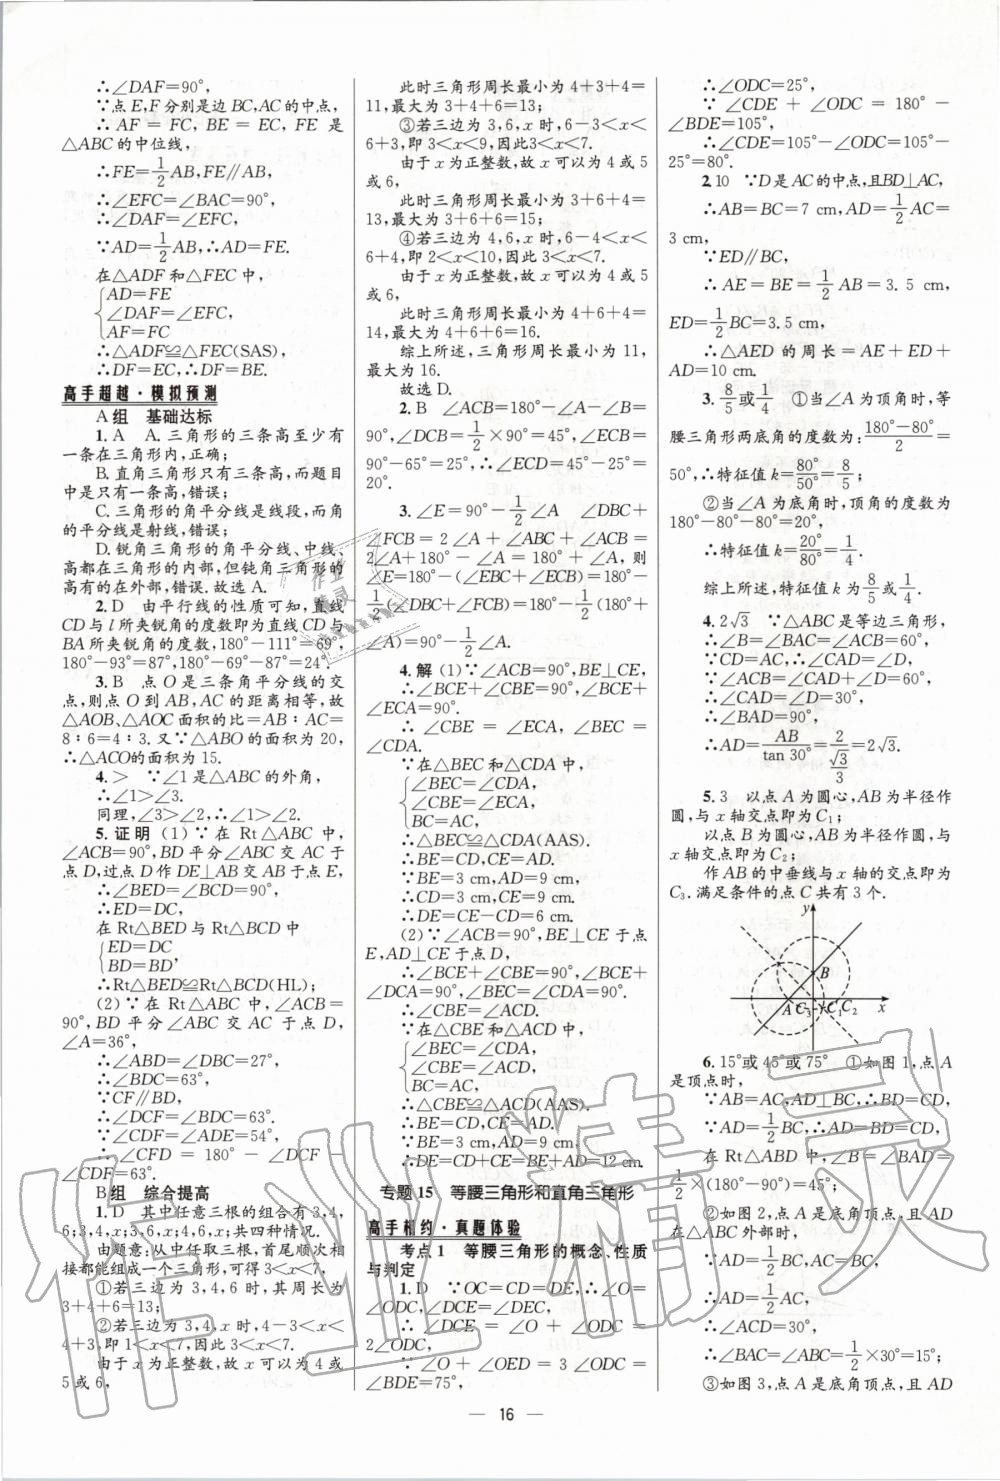 ∴∠DAF=90°,
∵点E,F分别是边BC,AC的中点,
∴AF=FC,BE=EC,FE是
△ABC的中位线,
∴FE=1/2AB,FE∥AB,
∴∠EFC=∠BAC=90°,
∴∠DAF=∠EFC,
∵AD=1/2AB,∴AD=FE.
在△ADF和△FEC中,
AD=FE
∠DAF=∠EFC,
AF=FC
∴△ADF≌△FEC(SAS),
∴DF=EC,∴DF=BE.
高手超越·模拟预测
A组 基础达标
1.A A.三角形的三条高至少有
一条在三角形内,正确;
B.直角三角形只有三条高,而题目
中是只有一条高,错误;
C.三角形的角平分线是线段,而角
的平分线是射线,错误;
D.锐角三角形的角平分线、中线、
高都在三角形的内部,但钝角三角形的
高有的在外部,错误.故选A.
2.D 由平行线的性质可知,直线
CD与l所夹锐角的度数即为直线CD与
BA所夹锐角的度数,180°-111°=69°,
180°-93°=87°,180°-69°-87°=24°.
3.B 点O是三条角平分线的交
点,则点O到AB,AC的距离相等,故
△AOB、△AOC面积的比=AB∶AC=
8∶6=4∶3.又∵△ABO的面积为20,
∴△ACO的面积为15.
4.> ∵∠1是△ABC的外角,
∴∠1>∠3.
同理,∠3>∠2,∴∠1>∠2.
5.证明 (1)∵在Rt△ABC中,
∠ACB=90°,BD平分∠ABC交AC于
点D,过点D作DE⊥AB交AB于点E,
∴∠BED=∠BCD=90°,
∴ED=DC,
在Rt△BED与Rt△BCD中
ED=DC
BD=BD'
∴Rt△BED≌Rt△BCD(HL);
(2)∵在Rt△ABC中,∠ACB=
90°,BD平分∠ABC交AC于点D,
∠A=36°,
∴∠ABD=∠DBC=27°,
∴∠BDC=63°,
∵CF∥BD,
∴∠DCF=∠BDC=63°.
∵∠CDF=∠ADE=54°,
∴∠CFD=180°-∠DCF-
∠CDF=63°.
B组 综合提高
1.D 其中任意三根的组合有3,4,
6;3,4,x;3,6,x;4,6,x,共四种情况.
由题意:从中任取三根,首尾顺次相
接都能组成一个三角形,可得3<x<7.
①若三边为3,4,6时,其周长为
3+4+6=13;
②若三边为3,4,x时,4-3<x<
4+3,即1<x<7,因此3<x<7.
由于x为正整数,故x可以为4或
5或6,
此时三角形周长最小为4+3+4=
11,最大为3+4+6=13;
③若三边为3,6,x时,6-3<x<
6+3,即3<x<9,因此3<x<7.
由于x为正整数,故x可以为4或5
或6,
此时三角形周长最小为3+6+4=
13,最大为3+6+6=15;
④若三边为4,6,x时,6-4<x<
6+4,即2<x<10,因此3<x<7.
由于x为正整数,故x可以为4或5
或6,
此时三角形周长最小为4+6+4=
14,最大为4+6+6=16.
综上所述,三角形周长最小为11,
最大为16.
故选D.
2.B ∠ACB=180°-∠A-∠B=
90°,∠DCB=1/2×90°=45°,∠ECB=
90°-65°=25°,∴∠ECD=45°-25°=
20°.
3.∠E=90°-1/2∠A ∠DBC+
∠FCB=2∠A+∠ABC+∠ACB=
2∠A+180°-∠A=180°+∠A,则
∠E=180°-(∠EBC+∠ECB)=180°-
1/2(∠DBC+∠FCB)=180°-1/2(180°+
∠A)=90°-1/2∠A.
4.解 (1)∵∠ACB=90°,BE⊥CE,
∴∠BCE+∠CBE=90°,∠BCE+
∠ECA=90°.
∴∠CBE=∠ECA,∠BEC=
∠CDA.
∵在△BEC和△CDA中,
∠BEC=∠CDA,
∠CBE=∠ECA,
BC=AC,
∴△BEC≌△CDA(AAS).
∴BE=CD,CE=AD.
∵BE=3 cm,AD=9 cm,
∴CD=3 cm,CE=9 cm.
∴DE=CE-CD=6 cm.
(2)∵∠ACB=90°,BE⊥CE于点
E,AD⊥CE于点D,
∴∠BCE+∠CBE=90°,∠BCE+
∠DCA=90°,∠BEC=∠CDA=90°.
∴∠CBE=∠ACD.
∵在△CBE和△ACD中,
∠BEC=∠CDA,
∠CBE=∠ACD,
BC=AC
∴△CBE≌△ACD(AAS).
∴BE=CD,CE=AD.
∵BE=3 cm,AD=9 cm,
∴DE=CD+CE=BE+AD=12 cm.
专题15 等腰三角形和直角三角形
高手相约·真题体验
考点1 等腰三角形的概念、性质
与判定
1.D ∵OC=CD=DE,∴∠O=
∠ODC,∠DCE=∠DEC,
∴∠DCE=∠O+∠ODC=
2∠ODC,
∵∠O+∠OED=3∠ODC=
∠BDE=75°,
∴∠ODC=25°,
∵∠CDE+∠ODC=180°-
∠BDE=105°,
∴∠CDE=105°-∠ODC=105°-
25°=80°.
2.10 ∵D是AC的中点,且BD⊥AC,
∴AB=BC=7 cm,AD=1/2AC=
3 cm,
∵ED∥BC,
∴AE=BE=1/2AB=3.5 cm,
ED=1/2BC=3.5 cm,
∴△AED的周长=AE+ED+
AD=10 cm.
3.8/5或1/4 ①当∠A为顶角时,等
腰三角形两底角的度数为:(180°-80°)/2=
50°,∴特征值k=80°/50°=8/5;
②当∠A为底角时,顶角的度数为
180°-80°-80°=20°,
∴特征值k=20°/80°=1/4.
综上所述,特征值k为8/5或1/4.
4.2√3 ∵△ABC是等边三角形,
∴∠B=∠BAC=∠ACB=60°,
∵CD=AC,∴∠CAD=∠D,
∵∠ACB=∠CAD+∠D=60°,
∴∠CAD=∠D=30°,
∴∠BAD=90°,
∴AD=AB/tan 30°=2/(√3/3)=2√3.
5.3 以点A为圆心,AB为半径作
圆,与x轴交点即为C₁;
以点B为圆心,AB为半径作圆,与
x轴交点即为C₂;
作AB的中垂线与x轴的交点即为
C₃.满足条件的点C共有3个.
y
B
A C₃ C₁ C₂ x
6.15°或45°或75° ①如图1,点A
是顶点时,
∵AB=AC,AD⊥BC,∴BD=CD,
∵AD=1/2BC,∴AD=BD=CD,
在Rt△ABD中,∠B=∠BAD=
1/2×(180°-90°)=45°;
②如图2,点A是底角顶点,且AD
在△ABC外部时,
∵AD=1/2BC,AC=BC,
∴AD=1/2AC,
∴∠ACD=30°,
∴∠BAC=∠ABC=1/2×30°=15°;
③如图3,点A是底角顶点,且AD
— 16 —
作业精灵
作业
精灵